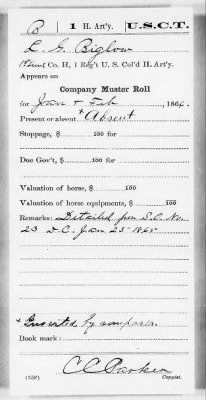 B | 1 H. Art'y. | U.S.C.T.
L. G. Biglow
Co. H, 1 Reg't U. S. Col'd H. Art'y.
Appears on
Company Muster Roll
for Jan & Feb, 186
Present or absent *Absent
Stoppage, $ 100 for
Due Gov't, $ 100 for
Valuation of horse, $ 100
Valuation of horse equipments, $ 100
Remarks: Detailed from S.O. No.
23 D.C. Jan 25 1865
*Inserted by
Book mark:
(358)
Copyist.